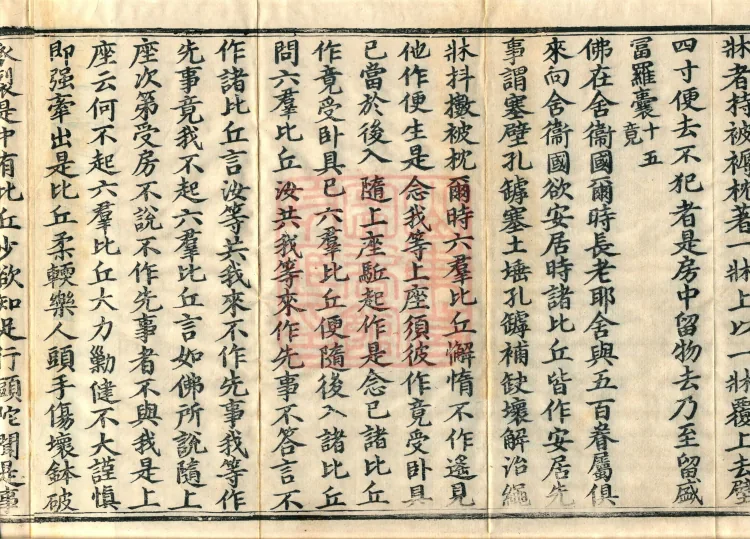 牀者持被褥枕著一牀上以一牀覆上去壁
四寸便去不犯者是房中留物去乃至留盛
冨羅囊十五竟
佛在舍衞國爾時長老耶舍與五百眷屬俱
來向舍衞國欲安居時諸比丘皆作安居先
事謂塞壁孔罅塞土埵孔罅補缺壞解治繩
牀抖擻被枕爾時六羣比丘懈惰不作遙見
他作便生是念我等上座須彼作竟受卧具
已當於後入隨上座駈起作是念已諸比丘
作竟受卧具已六羣比丘便隨後入諸比丘
問六羣比丘汝共我等來作先事不答言不
作諸比丘言汝等共我來不作先事我等作
先事竟我不起六羣比丘言如佛所說隨上
座次第受房不說不作先事者不與我是上
座云何不起六羣比丘大力勦健不大謹慎
即强牽出是比丘柔輭樂人頭手傷壞鉢破
衣裂是中有比丘少欲知足行頭陀聞是事